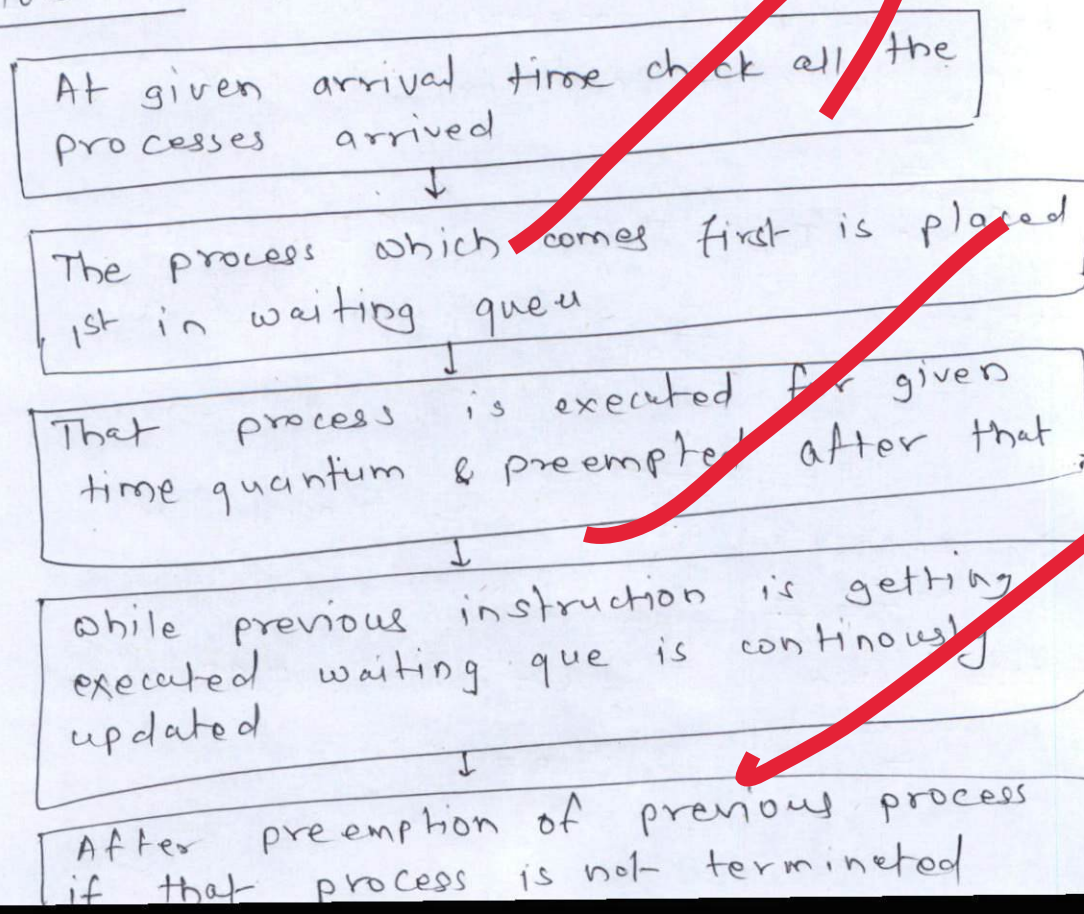 At given arrival time check all the
processes arrived
The process which comes first is placed
1st in waiting queu
That process is executed for given
time quantum & preempted after that
While previous instruction is getting
executed waiting que is continously
updated
After preemption of previous process
if that process is not terminated